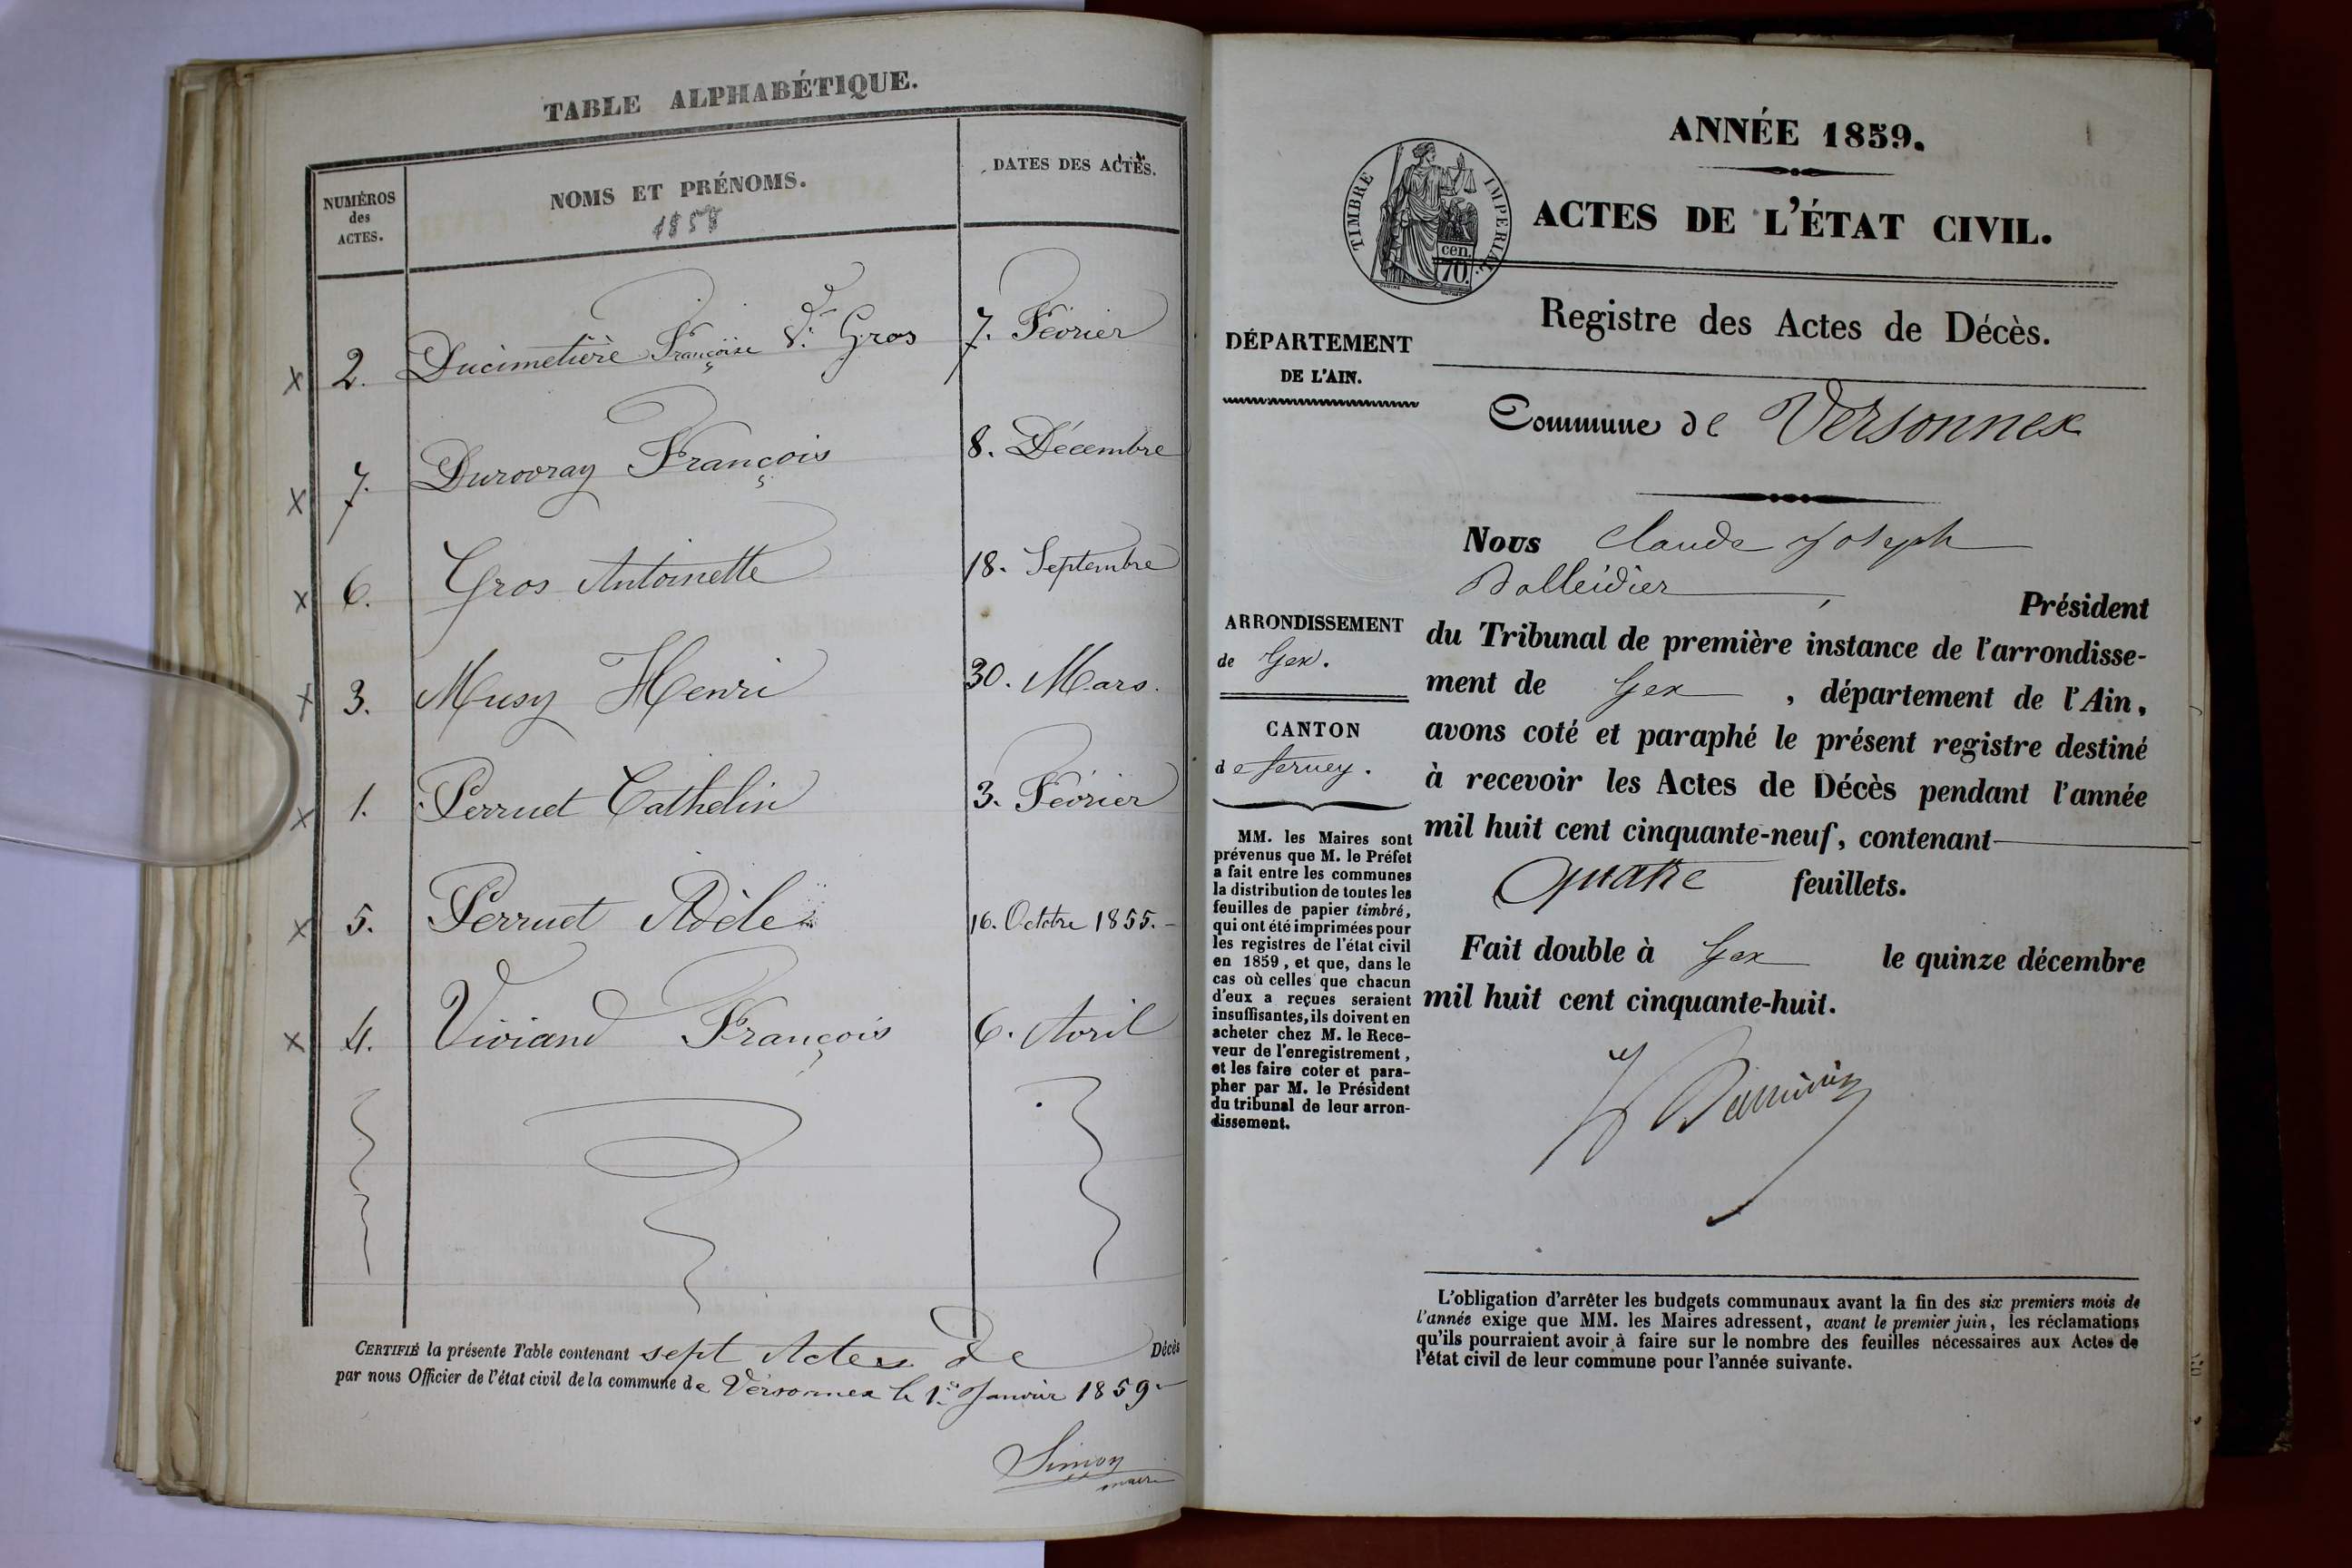 TABLE ALPHABÉTIQUE.
NUMÉROS
des
ACTES.
NOMS ET PRÉNOMS.
1858
DATES DES ACTES.
x 2. Ducimetière Françoise Ve Gros 7. Février
x 7. Durovray François 8. Décembre
x 6. Gros Antoinette 18. Septembre
x 3. Musy Henri 30. Mars.
x 1. Perruet Cathelin 3. Février
x 5. Perruet Adèle 16. Octobre 1855.
x 4. Viviand François 6. Avril
CERTIFIÉ la présente Table contenant sept Actes de Décès
par nous Officier de l'état civil de la commune de Versonnex le 1er Janvier 1859
Simon
maire
ANNÉE 1859.
TIMBRE IMPERIAL
cen.
70.
ACTES DE L'ÉTAT CIVIL.
Registre des Actes de Décès.
DÉPARTEMENT
DE L'AIN.
Commune de Versonnex
ARRONDISSEMENT
de Gex.
CANTON
de ferney.
MM. les Maires sont
prévenus que M. le Préfet
a fait entre les communes
la distribution de toutes les
feuilles de papier timbré,
qui ont été imprimées pour
les registres de l'état civil
en 1859, et que, dans le
cas où celles que chacun
d'eux a reçues seraient
insuffisantes, ils doivent en
acheter chez M. le Rece-
veur de l'enregistrement,
et les faire coter et para-
pher par M. le Président
du tribunal de leur arron-
dissement.
Nous Claude Joseph
Balleidier, Président
du Tribunal de première instance de l'arrondisse-
ment de Gex, département de l'Ain,
avons coté et paraphé le présent registre destiné
à recevoir les Actes de Décès pendant l'année
mil huit cent cinquante-neuf, contenant
quatre feuillets.
Fait double à Gex le quinze décembre
mil huit cent cinquante-huit.
L'obligation d'arrêter les budgets communaux avant la fin des six premiers mois de
l'année exige que MM. les Maires adressent, avant le premier juin, les réclamations
qu'ils pourraient avoir à faire sur le nombre des feuilles nécessaires aux Actes de
l'état civil de leur commune pour l'année suivante.